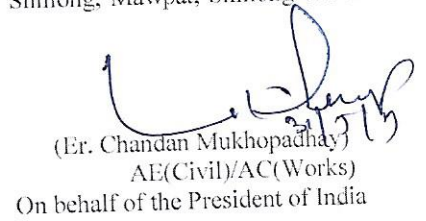 Shillong, Mawpat, Shillong
(Er. Chandan Mukhopadhay)
AE(Civil)/AC(Works)
On behalf of the President of India